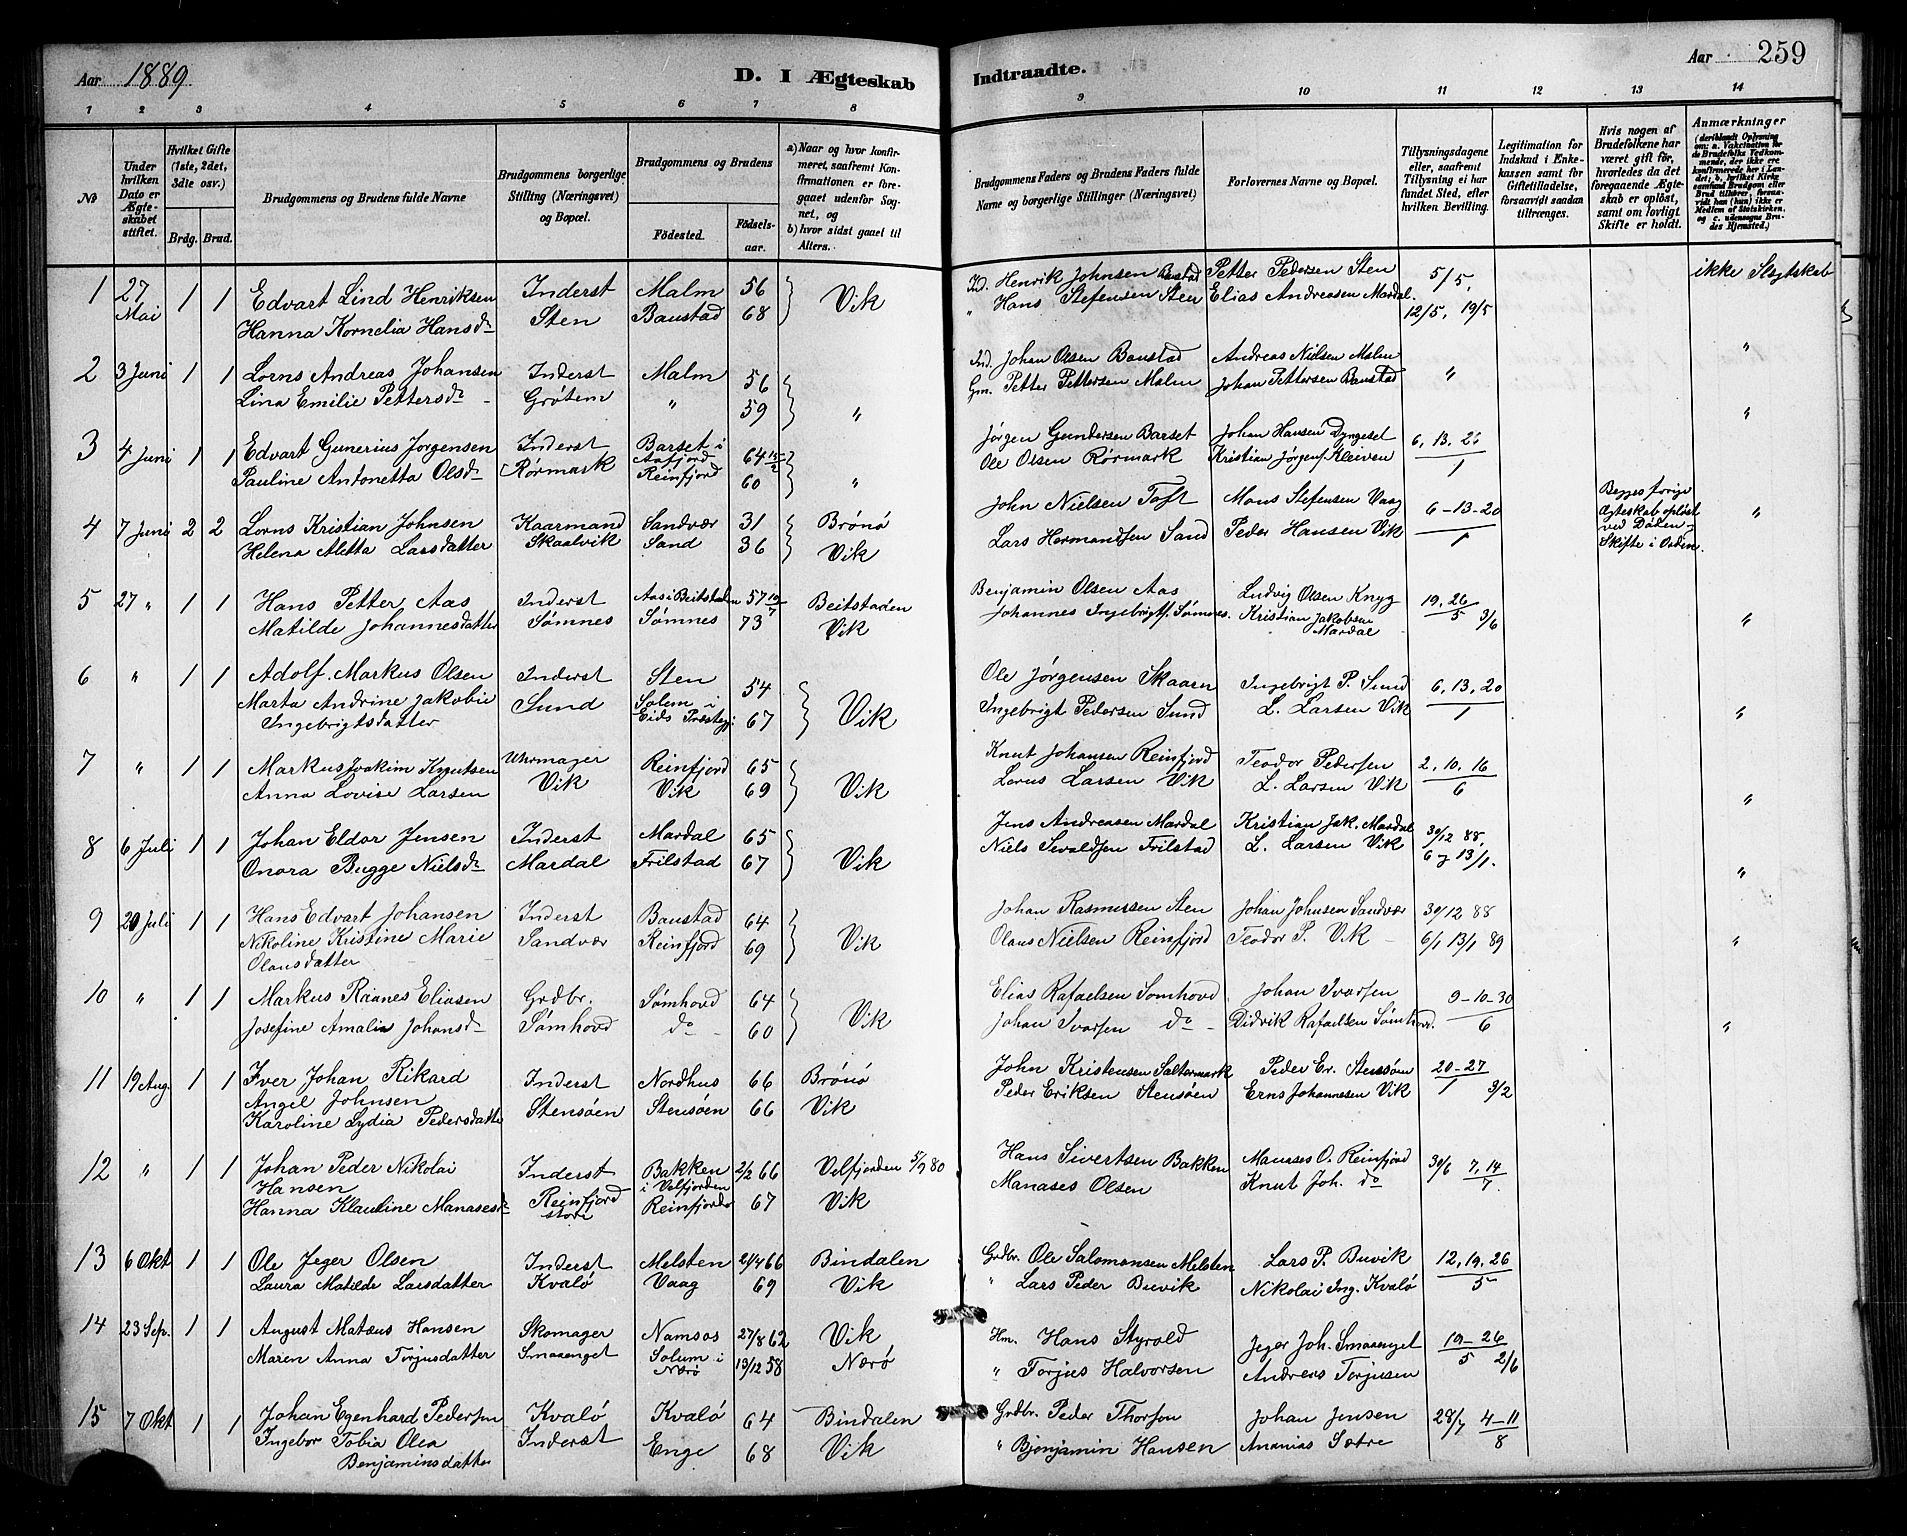 Aar 1889 D. I Ægteskab Indtraadte. Aar 259
1 2 3 4 5 6 7 8 9 10 11 12 13 14
No
Under hvilken Dato er Ægteskabet stiftet.
Hvilket Gifte (1ste, 2det, 3die osv.)
Brdg. Brud.
Brudgommens og Brudens fulde Navne
Brudgommens borgerlige Stilling (Næringsvei) og Bopæl.
Brudgommens og Brudens
Fødested. Fødselsaar.
a) Naar og hvor konfirmeret, saafremt Konfirmationen er foregaaet udenfor Sognet, og
b) hvor sidst gaaet til Alters.
Brudgommens Faders og Brudens Faders fulde Navne og borgerlige Stillinger (Næringsvei)
Forlovernes Navne og Bopæl.
Tillysningsdagene eller, saafremt Tillysning ei har fundet Sted, efter hvilken Bevilling.
Legitimation for Indskud i Enkekassen samt for Giftetilladelse, forsaavidt saadan tiltrænges.
Hvis nogen af Brudefolkene har været gift før, hvorledes da det foregaaende Ægteskab er opløst, samt om lovligt Skifte er holdt.
Anmærkninger (deriblandt Oplysning om: a. Vaccination for de Brudefolks Vedkommende, der ikke ere konfirmerede her i Landet, b. hvilket Kirkesamfund Brudgom eller Brud tilhører, forsaavidt han (hun) ikke er Medlem af Statskirken, og c. udensogns Brudes Hjemsted.)
1 27 Mai 1 1 Edvart Lind Henriksen Inderst Malm 56 Vik Ind. Henrik Johnsen Baustad Petter Pedersen Sten 5/5, ikke Slegtskab
Hanna Kornelia Hansd. Sten Baustad 68 " Hans Stefensen Sten Elias Andreasen Mardal. 12/5, 19/5
2 3 Juni 1 1 Lorns Andreas Johansen Inderst Malm 56 " Ind. Johan Olsen Baustad Andreas Nielsen Malm " "
Lina Emilie Pettersd. Grøtem " 59 Gm. Petter Pettersen Malm Johan Pettersen Baustad
3 4 Juni 1 1 Edvart Gunerius Jørgensen Inderst Barset i Aafjord 64 15/2 " Jørgen Gundersen Barset Johan Hansen Dyngesel 6, 13, 26 "
Pauline Antonetta Olsd. Rørmark Reinfjord 60 Ole Olsen Rørmark Kristian Jørgens. Kleiven 1
4 7 Juni 2 2 Lorns Kristian Johnsen Kaarmand Sandvær 31 Brønø John Nielsen Toft Mons Stefensen Vaag 6-13-20 Begges forige Ægteskab opløst ved Døden - Skifte i Orden. "
Helena Aletta Larsdatter Skaalvik Sand 36 Vik Lars Hermandsen Sand Peder Hansen Vik 1
5 27 " 1 1 Hans Petter Aas Inderst Aas i Beitstaden 57 19/7 Beitstaden Benjamin Olsen Aas Ludvig Olsen Knyg 19, 26 "
Matilde Johannesdatter Sømnes Sømnes 73 Vik Johannes Ingebrigts. Sømnes. Kristian Jakobsen Mardal 5 3/6
6 " 1 1 Adolf Markus Olsen Inderst Sten 54 Vik Ole Jørgensen Skaarn Ingebrigt P. Sund 6, 13, 20 "
Marta Andrine Jakobie Sund Solem i Eids Præstegj. 67 Ingebrigt Pedersen Sund L. Larsen Vik 1
Ingebrigtsdatter
7 " 1 1 Markus Joakim Knutsen Uhrmager Reinfjord 65 Vik Knut Johansen Reinfjord Teodor Pedersen 2, 10, 16 "
Anna Lovise Larsen Vik Vik 69 Lorns Larsen Vik L. Larsen Vik 6
8 6 Juli 1 1 Johan Eldor Jensen Inderst Mardal 65 Vik Jens Andreasen Mardal Kristian Jak. Mardal 30/12 88, "
Onora Bugge Nielsd. Mardal Frilstad 67 Niels Sivaldsen Frilstad L. Larsen Vik 6 og 13/1.
9 20 Juli 1 1 Hans Edvart Johansen Inderst Baustad 64 Vik Johan Rasmussen Sten Johan Johnsen Sandvær 30/12 88 "
Nikoline Kristine Marie Sandvær Reinfjord 69 Olaus Nielsen Reinfjord Teodor P. Vik 6/1 13/1 89
Olausdatter
10 " 1 1 Markus Raanes Eliasen Grdbr. Sømhovd 64 Vik Elias Rafaelsen Somhovd Johan Ivarsen 9-10-30 "
Josefine Amalia Johansd. Sømhovd do 60 Johan Ivarsen do Didvik Rafaelsen Sømhovd. 6
11 19 Aug. 1 1 Iver Johan Rikard Inderst Nordhus 66 Brønø John Kristensen Saltermark Peder Er. Stensøen 20-27
Angel Johnsen Stensøen Stensøen 66 Vik Peder Eriksen Stensøen Erns Johannesen Vik 1 3/2
Karoline Lydia Pedersdatter
12 " 1 1 Johan Peder Nikolai Inderst Bakken i Velfjorden 2/2 66 Velfjorden 5/9 80 Hans Sivertsen Bakken Manases O. Reinfjord 30/6 7, 14
Hansen Reinfjord store Reinfjord 67 Vik Manases Olsen Knut Joh. do 7.
Hanna Klauline Manasesd.
13 6 Okt 1 1 Ole Jeger Olsen Inderst Melsten 21/4 66 Bindalen Grdbr. Ole Salomonsen Melsten Lars P. Buvik 12, 19, 26
Laura Matilde Larsdatter Kvalø Vaag 69 Vik " Lars Peder Buvik Nikolai Ing. Kvalø 5
14 23 Sep. 1 1 August Mateus Hansen Skomager Namsos 27/8 62 Vik Hm. Hans Styrold Jeger Joh. Smaaenget 19-26
Maren Anna Torjusdatter Smaaenget Solum i Nærø 13/12 58 Nærø " Torjus Halvorsen Andreas Torjusen 5 2/6
15 7 Okt 1 1 Johan Egenhard Pedersen Kvalø Kvalø 64 Bindalen Grdbr. Peder Thorson Johan Jensen 28/7 4-11
Ingebor Tobia Olea Inderst Enge 68 Vik " Bjenjamin Hansen Ananias Sætre 8
Benjaminsdatter